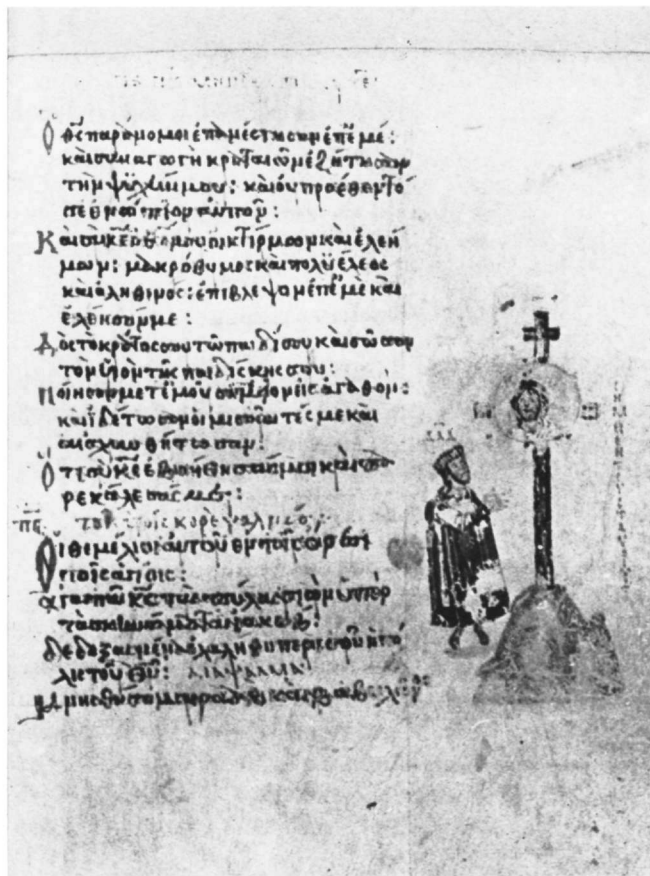 Ὁ θς παρανομοι ἐπανέστησαν ἐπ ἐμέ:
καὶ συναγωγὴ κραταιῶν ἐζήτησαν
τὴν ψυχήν μου: καὶ οὐ προέθεντό
σε ἐνώπιον αὐτῶν:
Καὶ σὺ κε ὁ θς μου οἰκτίρμων καὶ ἐλεή
μων: μακρόθυμος καὶ πολυέλεος
καὶ ἀληθινός: ἐπίβλεψον ἐπ ἐμὲ καὶ
ἐλέησόν με:
Δὸς τὸ κράτος σου τῶ παιδί σου καὶ σῶσον
τὸν υἱὸν τῆς παιδίσκης σου:
Ποίησον μετ ἐμοῦ σημεῖον εἰς ἀγαθόν:
καὶ ἰδέτωσαν οἱ μισοῦντές με καὶ
αἰσχυνθήτωσαν:
Ὅτι σὺ κε ἐβοήθησάς μοι καὶ πα
ρεκάλεσάς με:
πς τοῖς κορε ψαλμός
Οἱ θεμέλιοι αὐτοῦ ἐν τοῖς ὄρεσι
τοῖς ἁγίοις:
ἀγαπᾶ κς τὰς πύλας σιὼν ὑπὲρ
τὰ σκηνώματα ἰακώβ:
δεδοξασμένα ἐλαλήθη περὶ σοῦ ἡ πό
λις τοῦ θυ: διάψαλμα